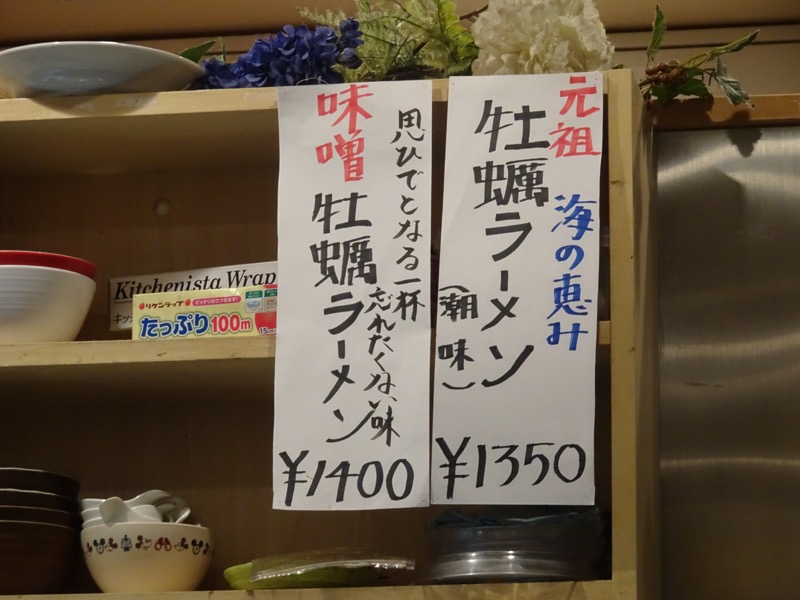 元祖
海の恵み
牡蠣ラーメン
(潮味)
¥1350
思ひでとなる一杯
忘れたくない味
味噌
牡蠣ラーメン
¥1400
Kitchenista Wrap
キッ
リケンラップ
たっぷり100m